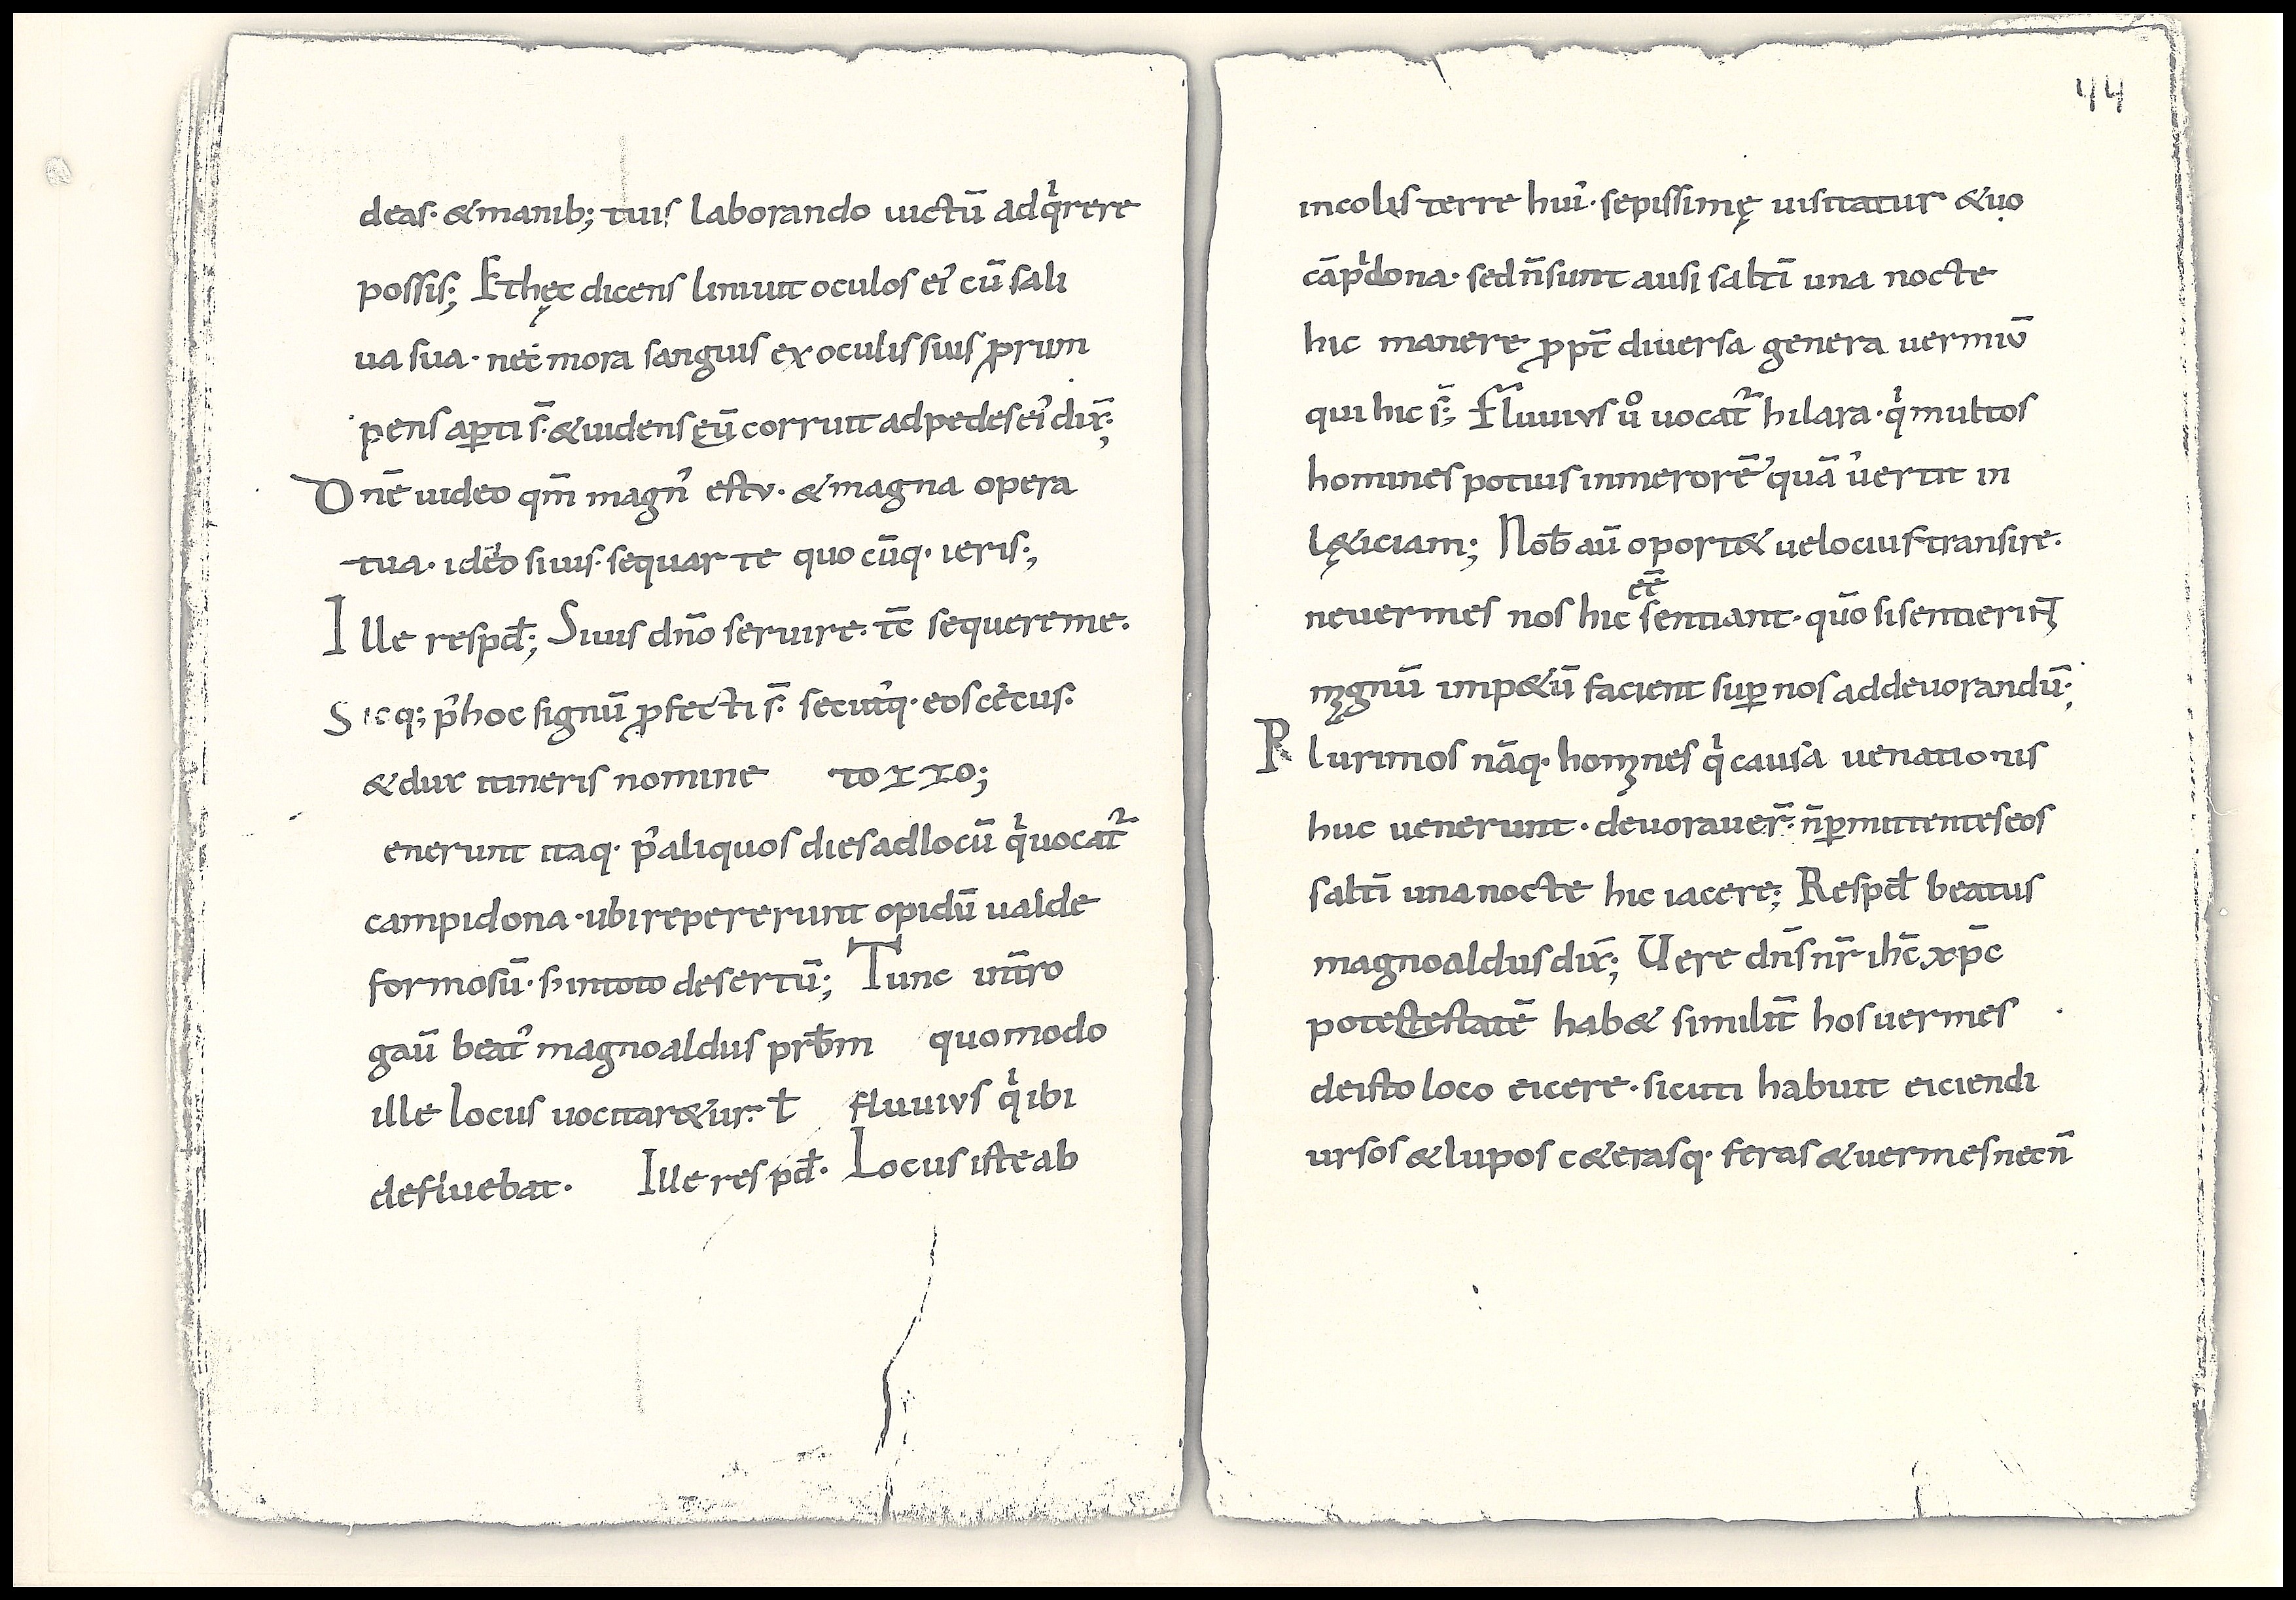 deas· &manib; tuis laborando uictū adq̍rere
possis; Ethęc dicens liniuit oculos ei᾿ cū sali
ua sua· nec mora sanguis ex oculis suis prum
pens aꝑti s̄· &uidens eū corruit adpedes ei᾿ dix̄;
Dn̄e uideo qm̄ magn᾿ estv· &magna opera
tua· ideo siuis· sequar te quo cūq· ieris;
Ille respd̄; Siuis dn̄o seruire· tc̄ sequereme·
Sicq; p᾿hoc signū ꝓfecti s̄· secut᾿q· eos cecus·
&dux itineris nomine tozzo;
enerunt itaq· p᾿aliquos dies adlocū q̍ uocat᾿
campidona· ubi repererunt opidū ualde
formosū· s; intoto desertū; Tunc int̄ro
gaū beat᾿ magnoaldus prb̄m quomodo
ille locus uocitar&ur· ł fluuivs q̍ ibi
defluebat· Ille respd̄· Locus iste ab
44
incolis terre hui᾿· sepissimę uisitatur &uo
cāp̍dona· sed n̄ sunt ausi saltī una nocte
hic manere ꝓpt̄ diuersa genera uermiū
qui hic s̄; Fluuivs ů uocat᾿ hilara· q̍ multos
homines potius inmerorē quā u᾿ertit in
lę&iciam; Nob̄ aū oport& uelocius transire·
ee̅
neuermes nos hic sentiant· quō si sentierint̄
mgnū imp&ū facient suꝑ nos addeuorandū;
Plurimos nāq· homines q̍ causa uenationis
huc uenerunt· deuorauer̄· n̄ ꝑmittentes eos
saltī una nocte hic iacere; Respd̄ beatus
magnoaldus dix̄; Uere dn̄s nr̄ ihc̄ xpc̄
potestestatē hab& similit̄ hos uermes
deisto loco eicere· sicuti habuit eiciendi
ursos &lupos c&erasq· feras &uermes necn̄